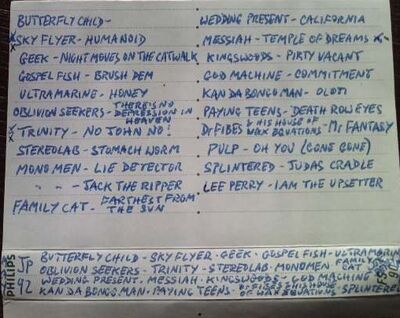 BUTTERFLY CHILD-
SKY FLYER - HUMANOID
GEEK - NIGHT MOVES ON THE CATWALK
GOSPEL FISH - BRUSH DEM
ULTRAMARINE - HONEY
OBLIVION SEEKERS - THERE IS NO DEPRESSION IN HEAVEN
TRINITY - NO JOHN NO!
STEREOLAB - STOMACH WORM
MONO MEN - LIE DETECTOR
" " - JACK THE RIPPER
FAMILY CAT - FARTHEST FROM THE SUN
WEDDING PRESENT - CALIFORNIA
MESSIAH - TEMPLE OF DREAMS
KINGSWOODS - PIRTY VACANT
GOD MACHINE - COMMITMENT
KANDA BONGO MAN - OLOTI
PAYING TEENS - DEATH ROW EYES
DR FIBES & HIS HOUSE OF WAX EQUATIONS - MR FANTASY
PULP - OH YOU (GONE GONE)
SPLINTERED - JUDAS CRADLE
LEE PERRY - I AM THE UPSETTER
PHILIPS
JP
92
BUTTERFLY CHILD - SKY FLYER - GEEK - GOSPEL FISH - ULTRAMARINE
OBLIVION SEEKERS - TRINITY - STEREOLAB - MONOMEN - FAMILY CAT
WEDDING PRESENT - MESSIAH - KINGSWOODS - GOD MACHINE
KANDA BONGO MAN - PAYING TEENS - DR FIBES & HIS HOUSE OF WAX EQUATIONS - SPLINTERED